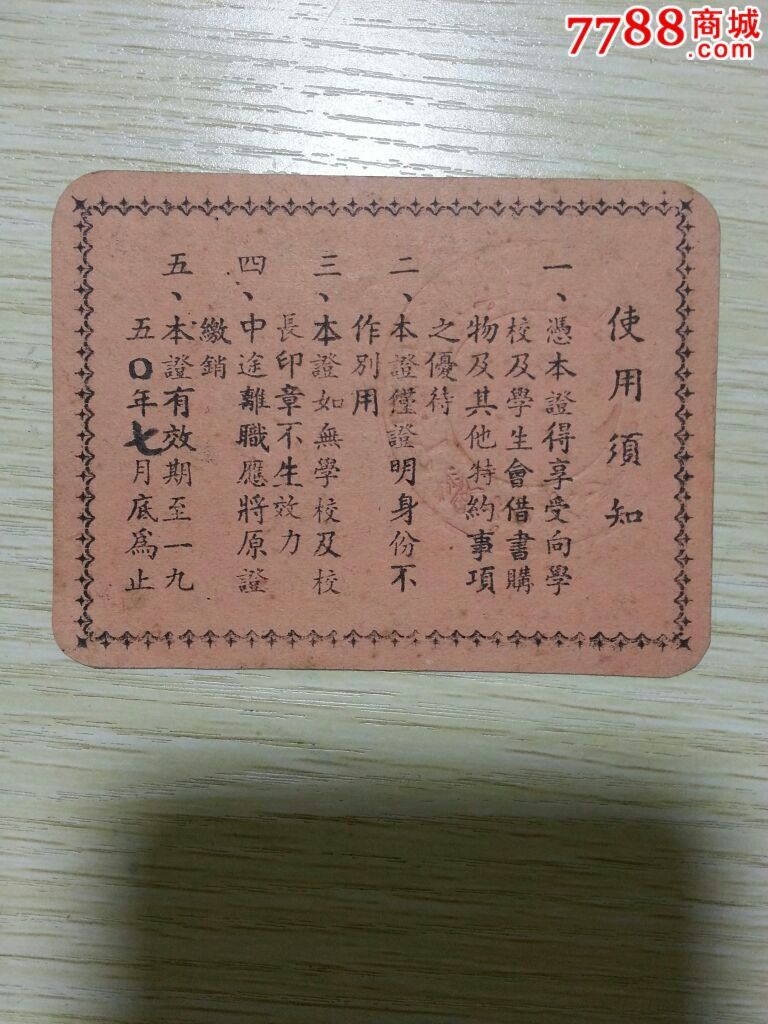 7788商城
.com
使用須知
一、憑本證得享受向學
校及學生會借書購
物及其他特約事項
之優待
二、本證僅證明身份不
作別用
三、本證如無學校及校
長印章不生效力
四、中途離職應將原證
繳銷
五、本證有效期至一九
五〇年七月底為止